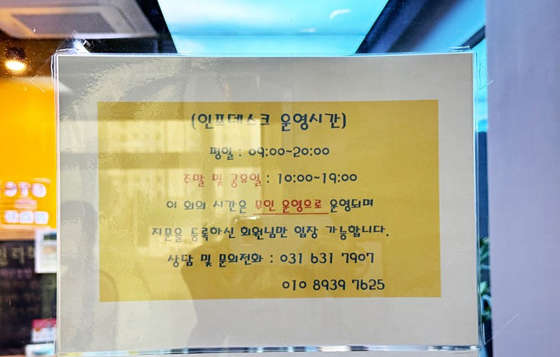 (인포데스크 운영시간)
평일 : 09:00~20:00
주말 및 공휴일 : 10:00~19:00
이 외의 시간은 무인 운영으로 운영되며
지문을 등록하신 회원님만 입장 가능합니다.
상담 및 문의전화 : 031 631 7907
010 8939 7625